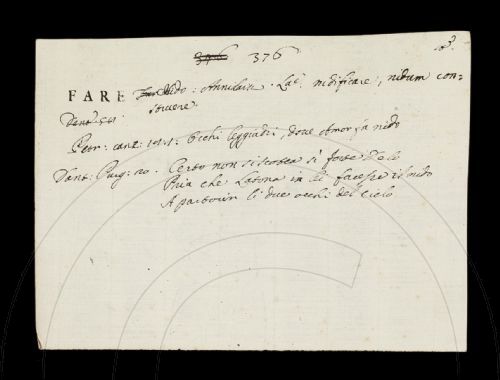 376
FARE Nido: Annidare. Lat. nidificare, nidum con=
struere.
Petr: canz: Occhi leggiadri, dove Amor fa nido
Dant: Purg: 20. Certo non si scotea sì forte Delo
Pria che Latona in lei facesse il nido
A partorir li due occhi del cielo